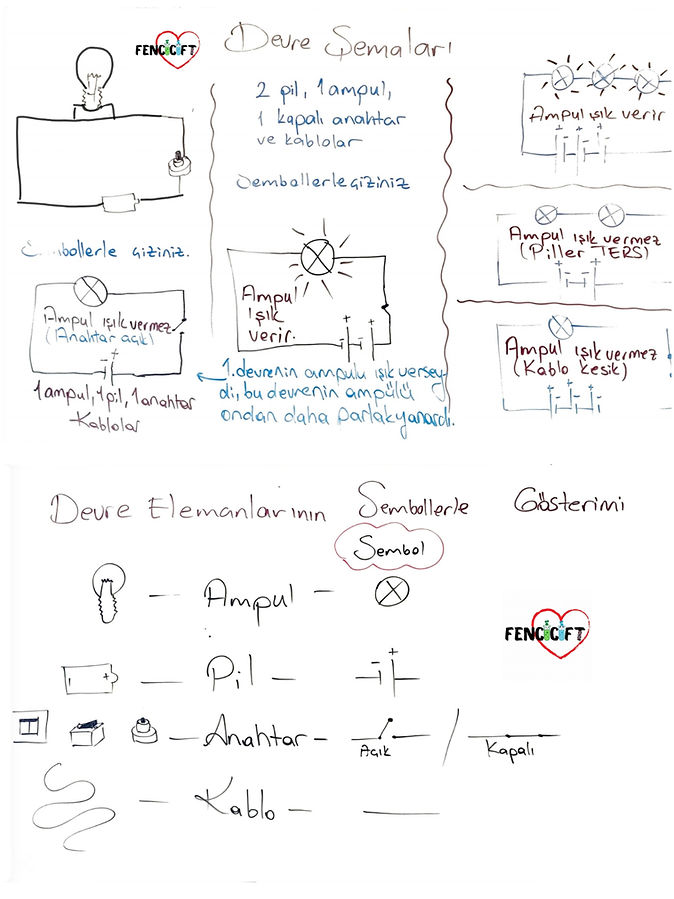 FENCİÇİFT
Devre Şemaları
2 pil, 1 ampul,
1 kapalı anahtar
ve kablolar
Sembollerle çiziniz
Sembollerle çiziniz.
Ampul ışık vermez
(Anahtar açık)
1 ampul, 1 pil, 1 anahtar
Kablolar
Ampul
ışık
verir.
1. devrenin ampulu ışık versey
di, bu devrenin ampülü
ondan daha parlak yanardı.
Ampul ışık verir
Ampul ışık vermez
(Piller TERS)
Ampul ışık vermez
(Kablo kesik)
Devre Elemanlarının Sembollerle Gösterimi
Sembol
Ampul
FENCİÇİFT
Pil
Anahtar
Açık
Kapalı
Kablo